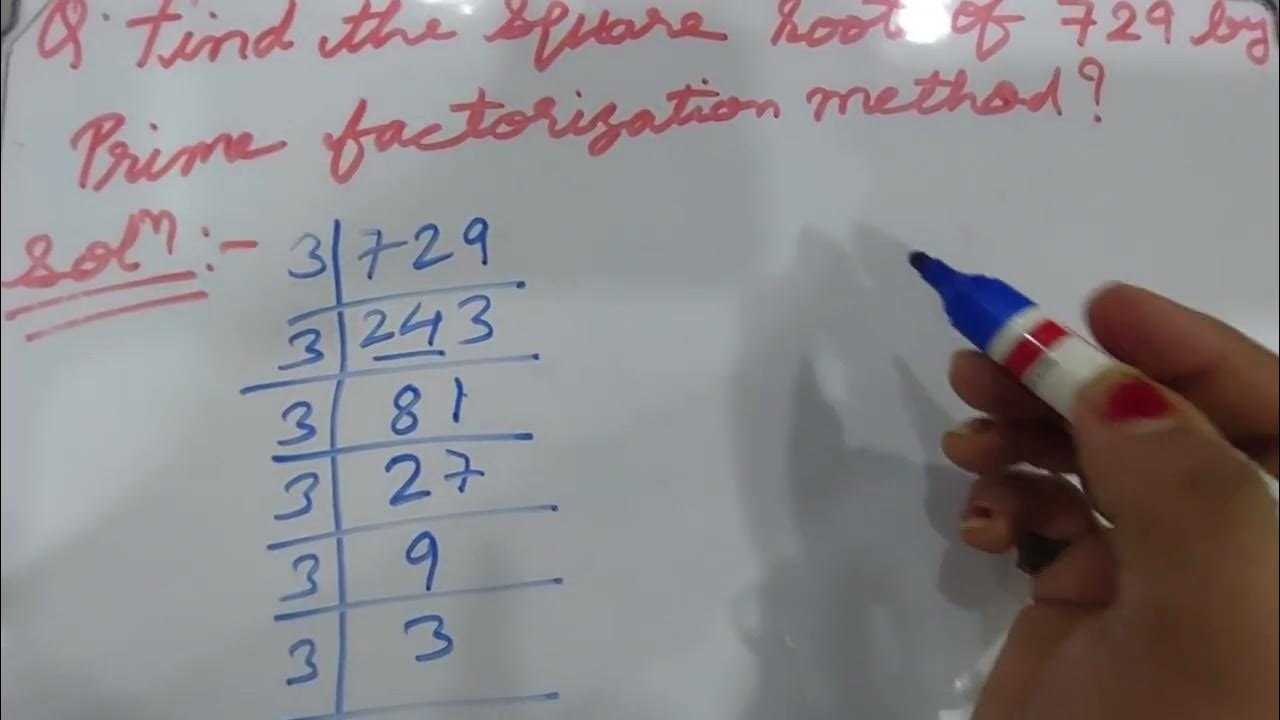 Q. Find the square root of 729 by
Prime factorization method?
Solⁿ :-
3 | 729
3 | 243
3 | 81
3 | 27
3 | 9
3 | 3